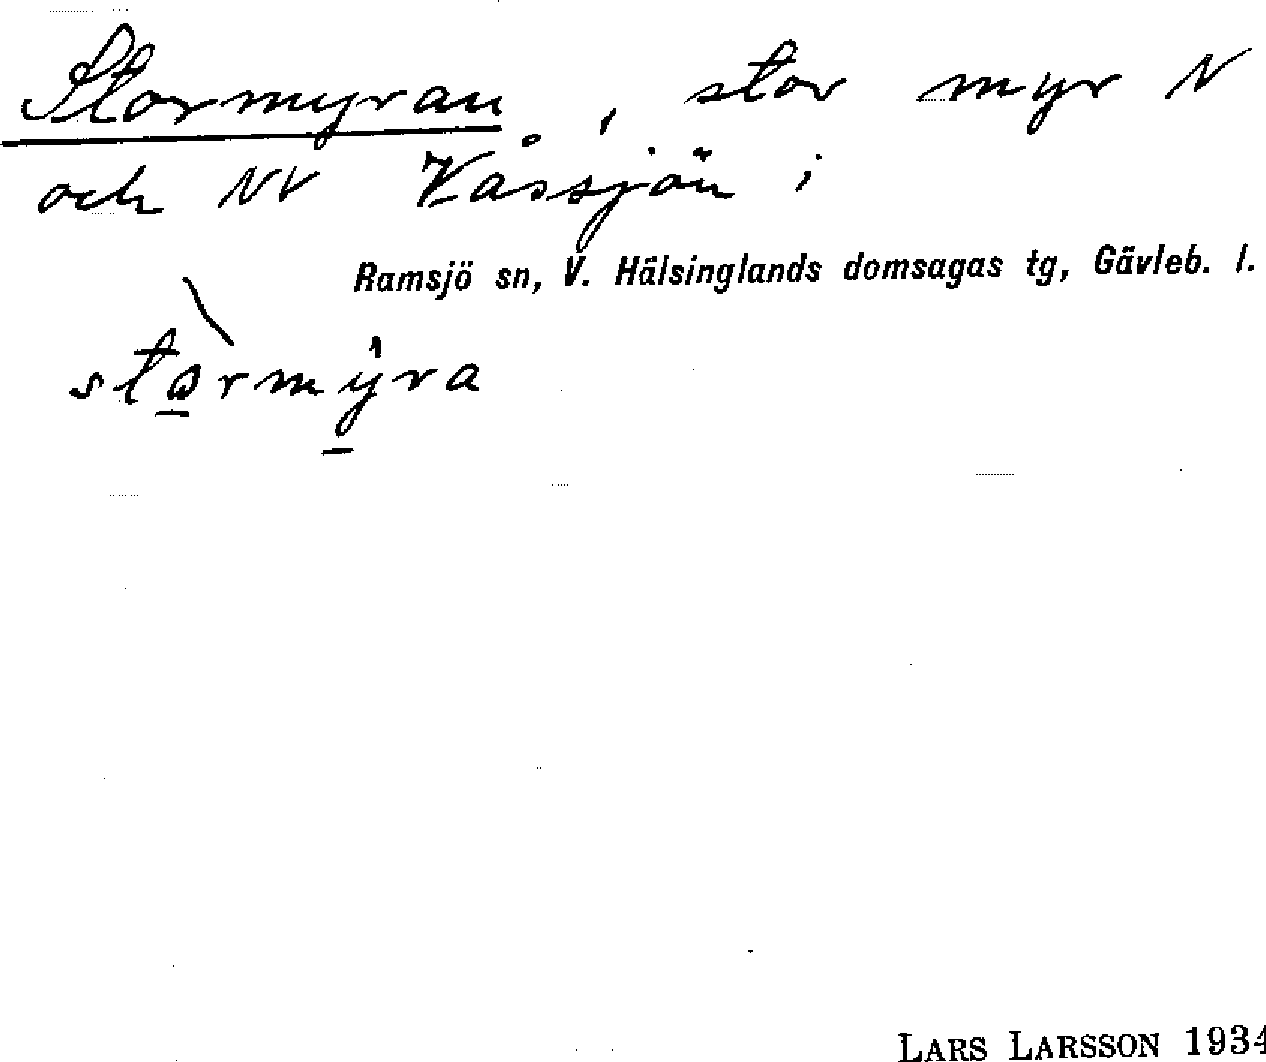 Stormyran, stor myr N
och NV Kåssjön;
Ramsjö sn, V. Hälsinglands domsagas tg, Gävleb. l.
stòrmýra
LARS LARSSON 1934